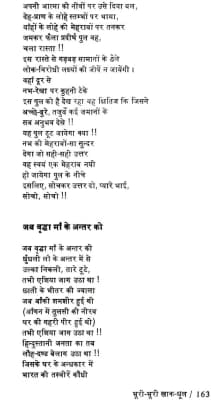 अपनी आत्मा की नींवों पर उसे दिया बल,
देह-प्राण के लोहे स्तम्भों पर थामा,
बाँहों के लोहे की मेहराबों पर तनकर
जमकर फैला प्रदीर्घ पुल वह,
चला रास्ता !!
इस रास्ते से गड़बड़ सामानों के ठेले
लोक-विरोधी लक्ष्यों की जीपें न जायेंगी ।
यहाँ दूर से
नभ-रेखा पर कुहनी टेके
इस पुल को है देख रहा वह क्षितिज कि जिसने
अच्छे-बुरे, तजुर्बे कई जमानों के
सब अनुभव देखे !!
यह पुल टूट जायेगा क्या !!
नभ की मेहराबों-सा सुन्दर
देगा जो सही-सही उत्तर
वह स्वयं एक मेहराब नयी
हो जायेगा पुल के नीचे
इसलिए, सोचकर उत्तर दो, प्यारे भाई,
सोचो, सोचो !!
जब वृद्धा माँ के अन्तर को
जब वृद्धा माँ के अन्तर की
धुँधली लौ के अन्तर में से
उल्का निकली, तारे टूटे,
तभी एशिया जाग उठा था !
छाती के भीतर की ज्वाला
जब बाँकी शमशीर हुई थी
(आँगन में तुलसी की नीरव
घर की गहरी पीर हुई थी)
तभी एशिया जाग उठा था !!
हिन्दुस्तानी जनता का तब
लौह-दण्ड बेलाग उठा था !!
जिसके घर के अन्धकार में
भारत की तस्वीरें कौंधी
भूरी-भूरी ख़ाक-धूल / 163